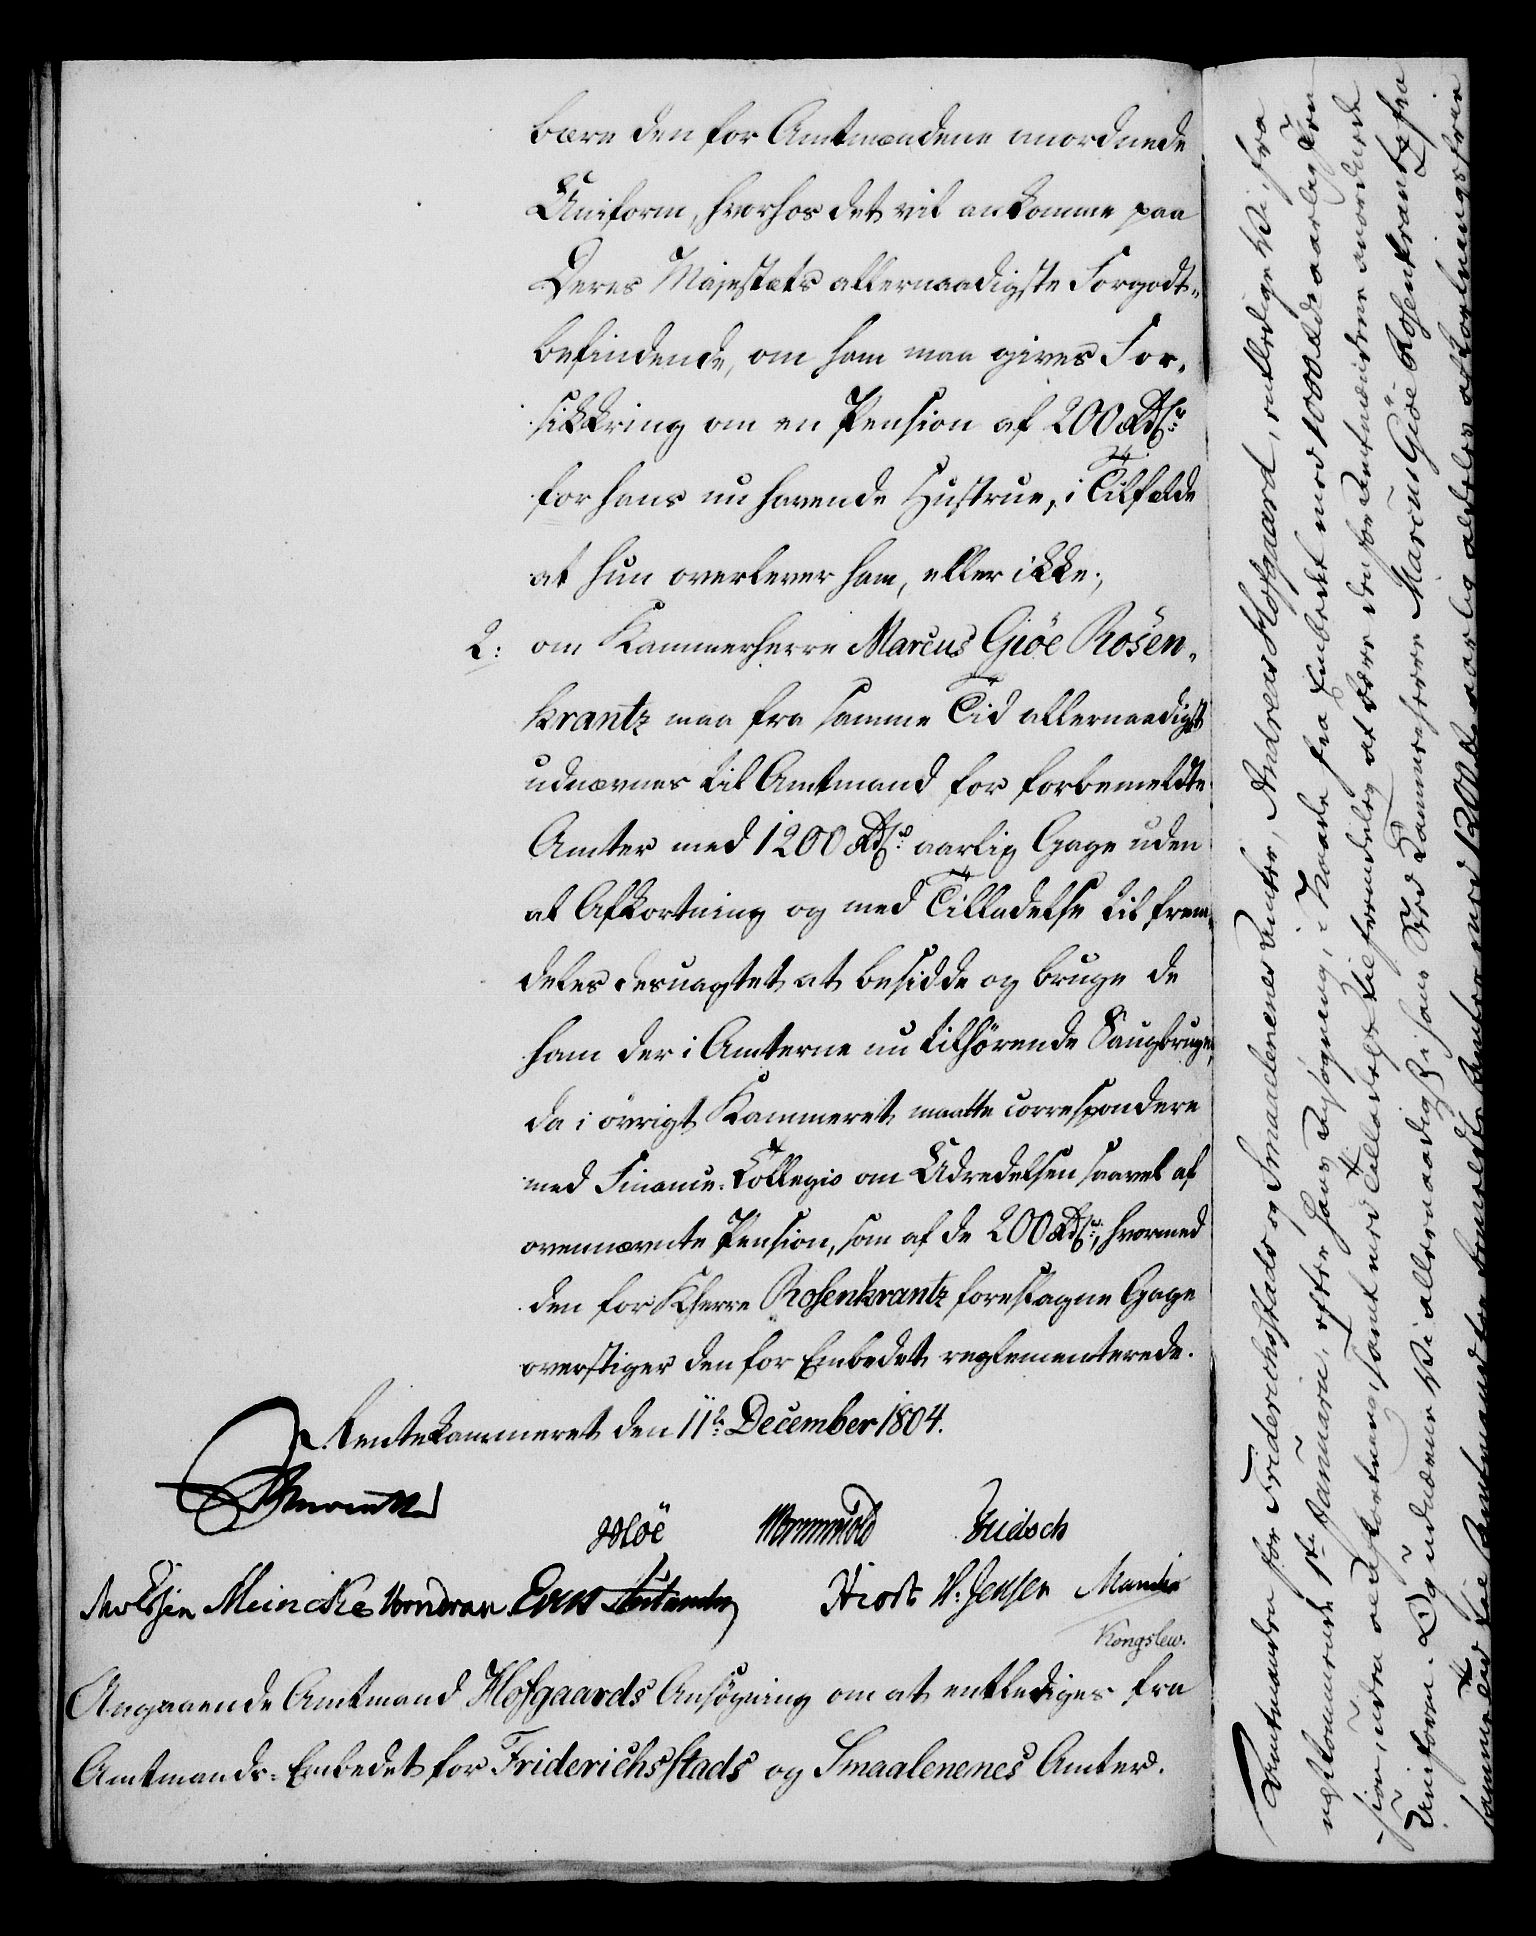 bære den for Amtmændene anordnede
Uniform, hvorhos det vil ankomme paa
Deres Majestæts allernaadigste Forgodt-
befindende, om ham maa gives For-
sikkring om en Pension af 200 Rdlr
for hans nu havende Hustrue, i Tilfælde
at hun overlever ham, eller ikke;
2: om Kammerherre Marcus Giöe Rosen-
krantz maa fra samme Tid allernaadigst
udnævnes til Amtmand for forbemeldte
Amter med 1200 Rdlr aarlig Gage uden
al Afkortning og med Tilladelse til frem-
deles desuagtet at besidde og bruge de
ham der i Amterne nu tilhörende Saugbruge,
da i övrigt Kammeret maatte correspondere
med Finance-Collegio om Udredelsen saavel af
ovennævnte Pension, som af de 200 Rdlr, hvormed
den for Kherre Rosenkrantz foreslagne Gage
overstiger den for Embedet reglementerede.
Rentekammeret den 11te December 1804.
Wormskiold
Meincke Hiort H: Jensen
Kongslew.
Angaaende Amtmand Hofgaards Ansögning om at entlediges fra
Amtmands-Embedet for Friderichsstads og Smaalenenes Amter.
Amtmanden for Friderichsstads og Smaalenenes Amter, Andreas Hofgaard, entledige Vi, fra
nestkommende 1te Januarii, efter hans Ansögning, i Naade fra Embedet med 1000 Rdlr aarlig Pen-
sion, uden Afkortning, samt med Tilladelse til fremdeles at bære den for Amtmændene anordnede
Uniform. Og udnævne Vi allernaadigst i hans Sted Kammerherre Marcus Giöe Rosenkrantz fra
samme Tid til Amtmand for bemeldte Amter med 1200 Rdlr aarlig aldeles afkortningsfrie